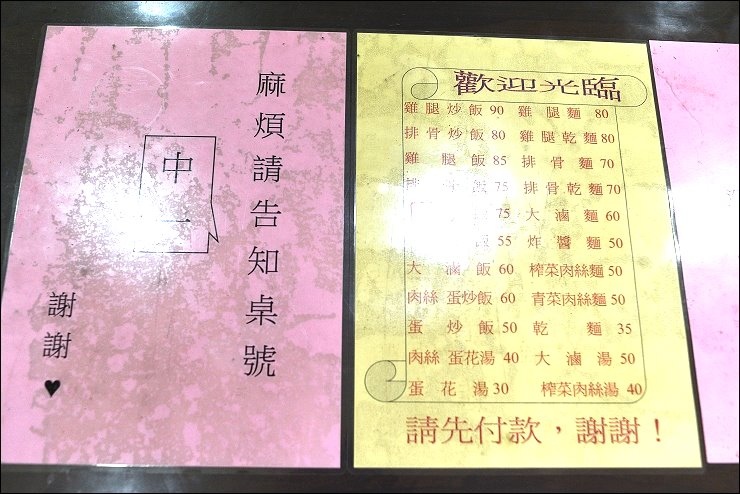 麻煩請告知桌號
中一
謝謝♥
歡迎光臨
雞腿炒飯 90 雞腿麵 80
排骨炒飯 80 雞腿乾麵 80
雞腿飯 85 排骨麵 70
飯 75 排骨乾麵 70
75 大滷麵 60
55 炸醬麵 50
大滷飯 60 榨菜肉絲麵 50
肉絲蛋炒飯 60 青菜肉絲麵 50
蛋炒飯 50 乾麵 35
肉絲蛋花湯 40 大滷湯 50
蛋花湯 30 榨菜肉絲湯 40
請先付款，謝謝！